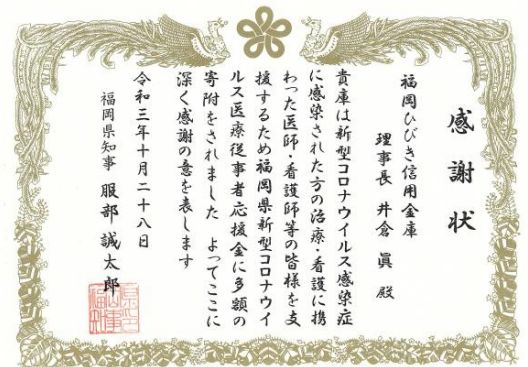 感謝状
福岡ひびき信用金庫
理事長 井倉 眞 殿
貴庫は新型コロナウイルス感染症
に感染された方の治療・看護に携
わった医師・看護師等の皆様を支
援するため福岡県新型コロナウイ
ルス医療従事者応援金に多額の
寄附をされました よってここに
深く感謝の意を表します
令和三年十月二十八日
福岡県知事 服部 誠太郎